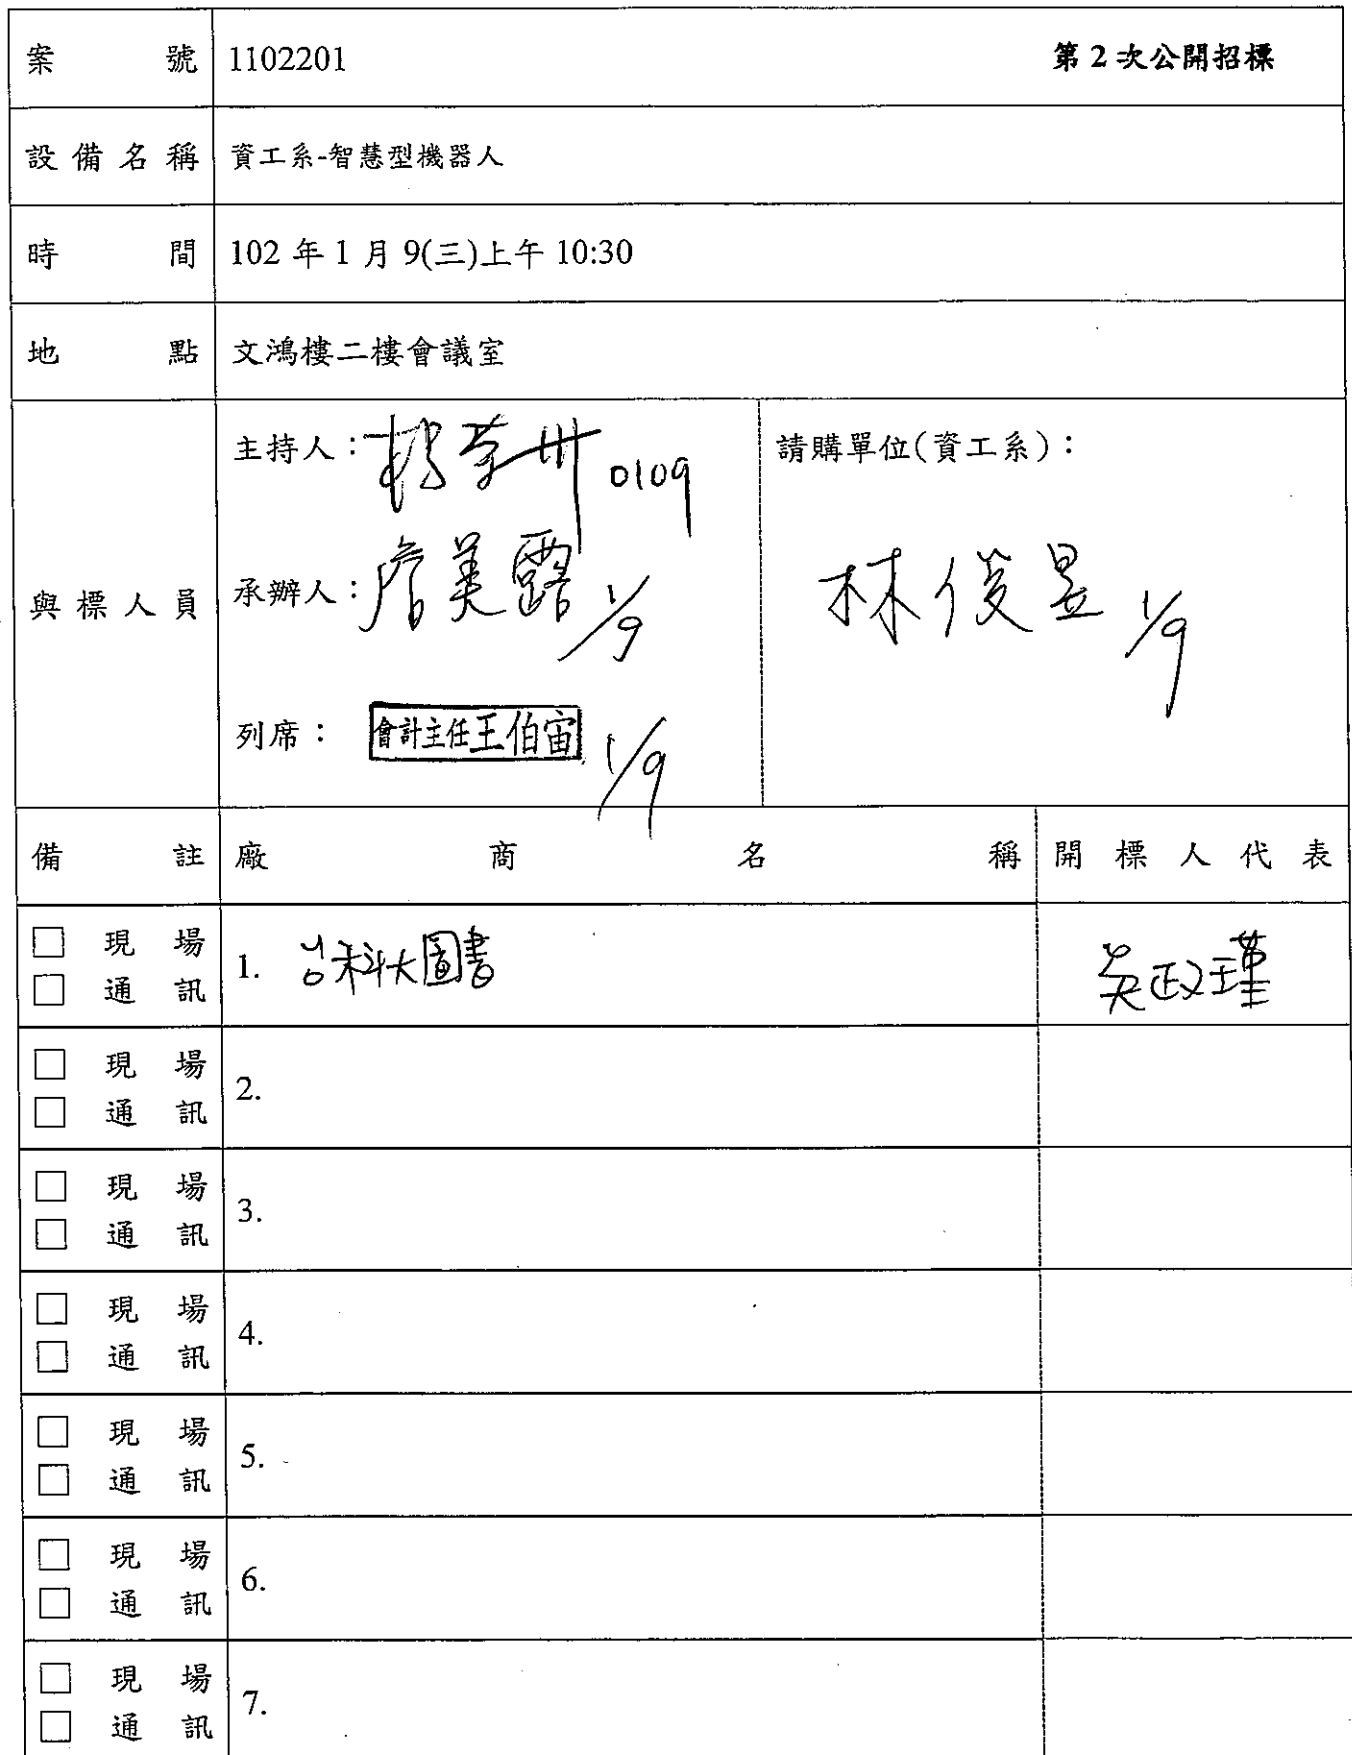 案號 1102201 第2次公開招標
設備名稱 資工系-智慧型機器人
時間 102 年 1 月 9(三)上午 10:30
地點 文鴻樓二樓會議室
與標人員
主持人： 0109
承辦人：詹美露 1/9
列席： 會計主任王伯宙 1/9
請購單位(資工系)：
林俊昱 1/9
備註 廠商名稱 開標人代表
□ 現場
□ 通訊
1. 台科大圖書 吳政瑾
□ 現場
□ 通訊
2.
□ 現場
□ 通訊
3.
□ 現場
□ 通訊
4.
□ 現場
□ 通訊
5.
□ 現場
□ 通訊
6.
□ 現場
□ 通訊
7.